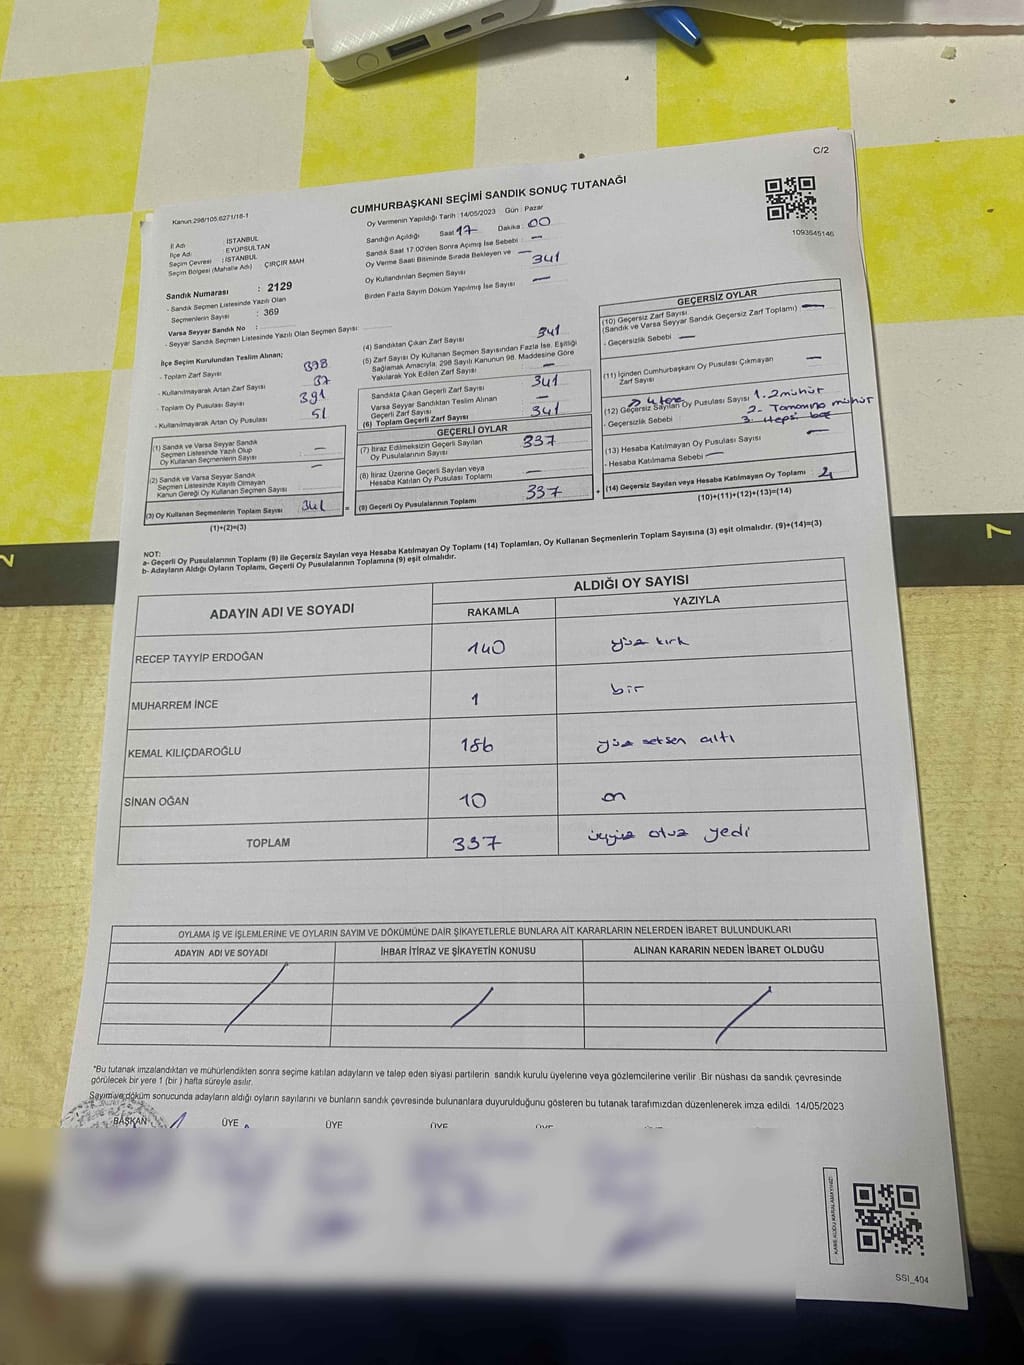 C/2
Kanun:298/105,6271/18-1
CUMHURBAŞKANI SEÇİMİ SANDIK SONUÇ TUTANAĞI
1093645146
İl Adı : İSTANBUL
İlçe Adı : EYÜPSULTAN
Seçim Çevresi : İSTANBUL
Seçim Bölgesi (Mahalle Adı) ÇIRÇIR MAH
Sandık Numarası : 2129
- Sandık Seçmen Listesinde Yazılı Olan
Seçmenlerin Sayısı : 369
Varsa Seyyar Sandık No :
- Seyyar Sandık Seçmen Listesinde Yazılı Olan Seçmen Sayısı:
Oy Vermenin Yapıldığı Tarih :14/05/2023 Gün : Pazar
Sandığın Açıldığı Saat 17 Dakika : 00
Sandık Saat 17.00'den Sonra Açılmış İse Sebebi : —
Oy Verme Saati Bitiminde Sırada Bekleyen ve —
Oy Kullandırılan Seçmen Sayısı 341
Birden Fazla Sayım Döküm Yapılmış İse Sayısı —
İlçe Seçim Kurulundan Teslim Alınan;
- Toplam Zarf Sayısı 398
- Kullanılmayarak Artan Zarf Sayısı 37
- Toplam Oy Pusulası Sayısı 391
- Kullanılmayarak Artan Oy Pusulası 51
(1) Sandık ve Varsa Seyyar Sandık
Seçmen Listesinde Yazılı Olup
Oy Kullanan Seçmenlerin Sayısı —
(2) Sandık ve Varsa Seyyar Sandık
Seçmen Listesinde Kayıtlı Olmayan
Kanun Gereği Oy Kullanan Seçmen Sayısı —
(3) Oy Kullanan Seçmenlerin Toplam Sayısı 341 =
(1)+(2)=(3)
(4) Sandıktan Çıkan Zarf Sayısı 341
(5) Zarf Sayısı Oy Kullanan Seçmen Sayısından Fazla İse, Eşitliği
Sağlamak Amacıyla; 298 Sayılı Kanunun 98. Maddesine Göre
Yakılarak Yok Edilen Zarf Sayısı —
Sandıkta Çıkan Geçerli Zarf Sayısı 341
Varsa Seyyar Sandıktan Teslim Alınan
Geçerli Zarf Sayısı —
(6) Toplam Geçerli Zarf Sayısı 341
GEÇERLİ OYLAR
(7) İtiraz Edilmeksizin Geçerli Sayılan
Oy Pusulalarının Sayısı 337
(8) İtiraz Üzerine Geçerli Sayılan veya
Hesaba Katılan Oy Pusulası Toplamı —
(9) Geçerli Oy Pusulalarının Toplamı 337 +
GEÇERSİZ OYLAR
(10) Geçersiz Zarf Sayısı
(Sandık ve Varsa Seyyar Sandık Geçersiz Zarf Toplamı) —
- Geçersizlik Sebebi —
(11) İçinden Cumhurbaşkanı Oy Pusulası Çıkmayan
Zarf Sayısı —
(12) Geçersiz Sayılan Oy Pusulası Sayısı 1. 2 mühür
- Geçersizlik Sebebi 2- Tamamına mühür
3. Hepsi boş
(13) Hesaba Katılmayan Oy Pusulası Sayısı —
- Hesaba Katılmama Sebebi —
(14) Geçersiz Sayılan veya Hesaba Katılmayan Oy Toplamı 4
(10)+(11)+(12)+(13)=(14)
NOT:
a- Geçerli Oy Pusulalarının Toplamı (9) ile Geçersiz Sayılan veya Hesaba Katılmayan Oy Toplamı (14) Toplamları, Oy Kullanan Seçmenlerin Toplam Sayısına (3) eşit olmalıdır. (9)+(14)=(3)
b- Adayların Aldığı Oyların Toplamı, Geçerli Oy Pusulalarının Toplamına (9) eşit olmalıdır.
ADAYIN ADI VE SOYADI ALDIĞI OY SAYISI
RAKAMLA YAZIYLA
RECEP TAYYİP ERDOĞAN 140 yüz kırk
MUHARREM İNCE 1 bir
KEMAL KILIÇDAROĞLU 186 yüz seksen altı
SİNAN OĞAN 10 on
TOPLAM 337 üçyüz otuz yedi
OYLAMA İŞ VE İŞLEMLERİNE VE OYLARIN SAYIM VE DÖKÜMÜNE DAİR ŞİKAYETLERLE BUNLARA AİT KARARLARIN NELERDEN İBARET BULUNDUKLARI
ADAYIN ADI VE SOYADI İHBAR İTİRAZ VE ŞİKAYETİN KONUSU ALINAN KARARIN NEDEN İBARET OLDUĞU
*Bu tutanak imzalandıktan ve mühürlendikten sonra seçime katılan adayların ve talep eden siyasi partilerin sandık kurulu üyelerine veya gözlemcilerine verilir .Bir nüshası da sandık çevresinde
görülecek bir yere 1 (bir ) hafta süreyle asılır.
Sayım ve döküm sonucunda adayların aldığı oyların sayılarını ve bunların sandık çevresinde bulunanlara duyurulduğunu gösteren bu tutanak tarafımızdan düzenlenerek imza edildi. 14/05/2023
BAŞKAN ÜYE ÜYE ÜYE ÜYE
SSI_404
2
7